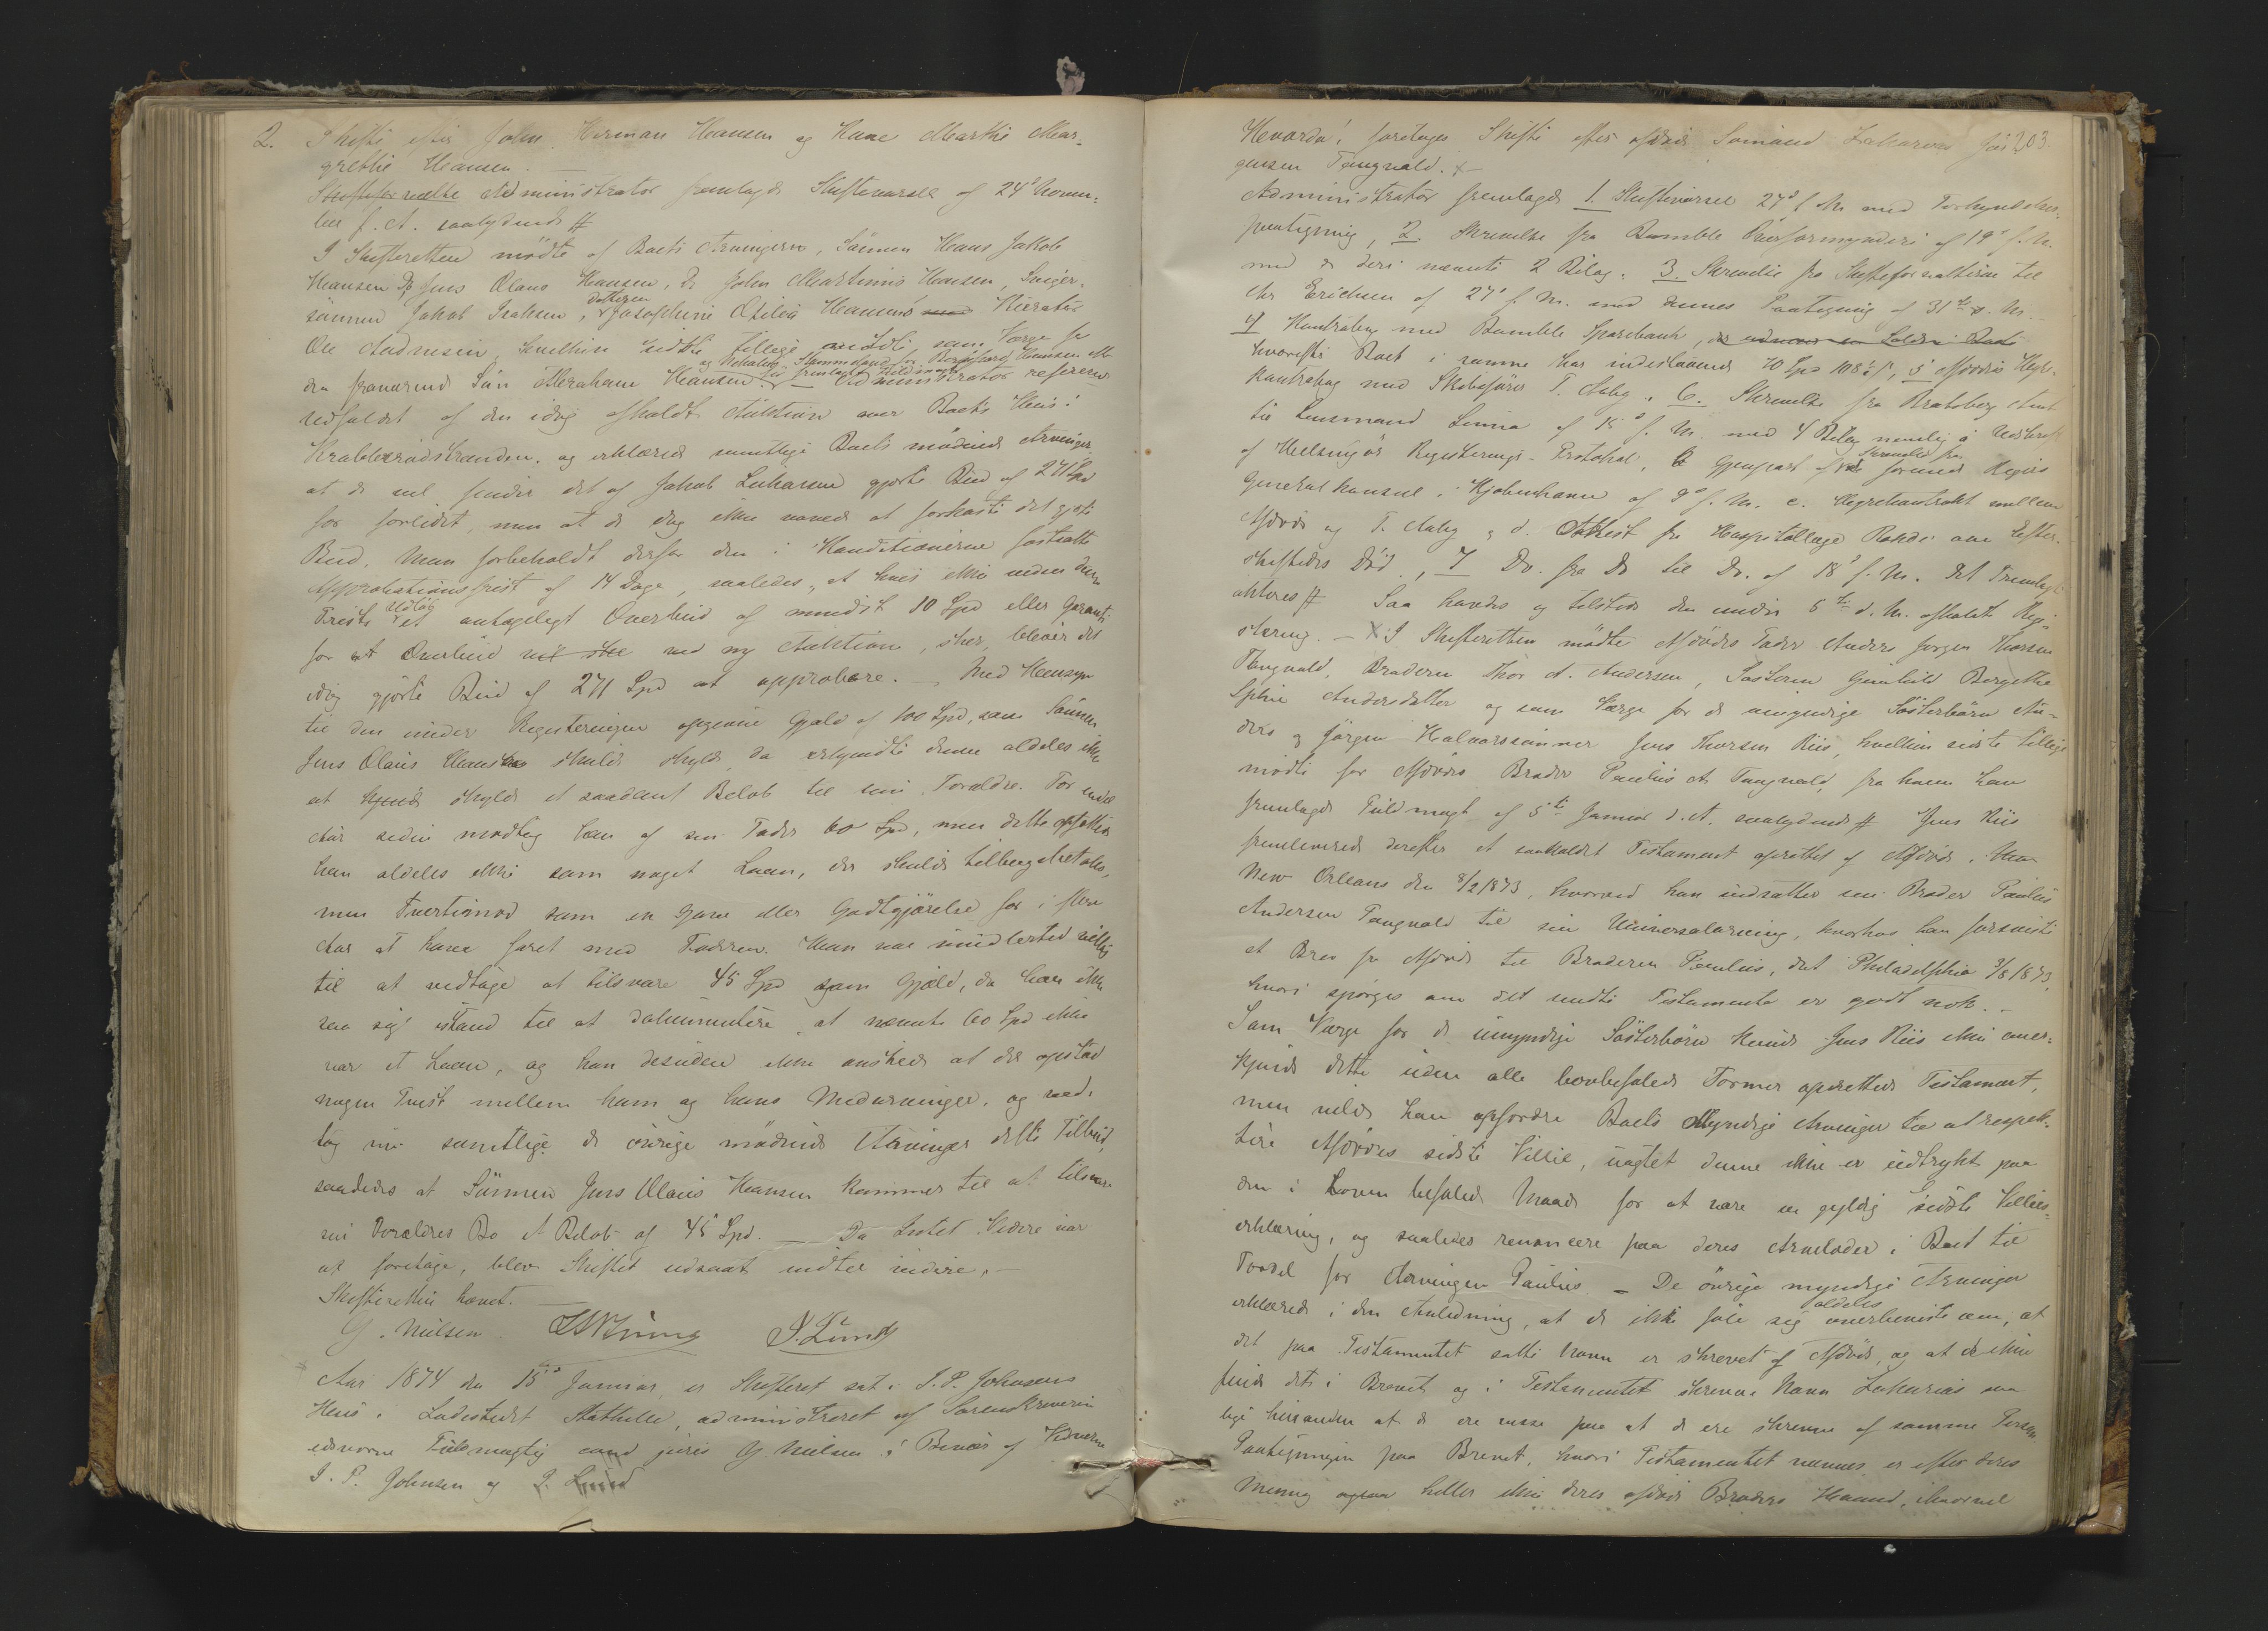 2. Skifte efter John Herman Hansen og Kone Marthe Mar-
grethe Hansen. —
Administrator fremlagde Skiftevarsel af 24de Novem-
ber f. A. saalydende #
I Skifteretten mødte af Boets Arvinger, Sønnen Hans Jakob
Hansen, Do Jens Olaus Hansen, Do John Martinius Hansen, Sviger-
sønnen Jakob Isaksen, Datteren Josephine Otilia Hansens Kurator
Ole Andresen, hvilken sidste tillige mødte som Værge for
og
den fraværende Søn Abraham Hansen. — Administrator refererede
Udfaldet af den idag afholdte Auktion over Boets Huus i
Krabberødstranden, og erklærede samtlige Boets mødende Arvinger
at de vel finder det af Jakob gjorte Bud af 271 Spd
for forlidet, men at de dog ikke vovede at forkaste det gjorte
Bud. Man forbeholdt derfor den i Konditionerne fastsatte
Approbationsfrist af 14 Dage, saaledes, at hvis ikke inden denne
Frists Udløb et antageligt Overbud af mindst 10 Spd eller Garanti
for at Overbud vil ske ved ny Auktion, sker, bliver det
idag gjorte Bud af 271 Spd at approbere. — Med Hensyn
til den under Registeringen opgivne Gjæld af 100 Spd, som Sønnen
Jens Olaus Hansen skulde skylde, da erkjendte denne aldeles ikke
at skylde et saadant Beløb til sine Forældre. For endel
Aar siden modtog han af sin Fader 60 Spd, men dette opfattede
han aldeles ikke som noget Laan, der skulde tilbagebetales,
men tvertimod som en Gave eller Godtgjørelse for i flere
Aar at have faret med Faderen. Han var imidlertid villig
til at vedtage at tilsvare 45 Spd som Gjæld, da han ikke
saa sig istand til at dokumentere, at nævnte 60 Spd ikke
var et Laan, og han desuden ikke ønskede at der opstod
nogen Tvist mellem ham og hans Medarvinger, og ved-
tog nu samtlige de øvrige mødende Arvinger dette Tilbud,
saaledes at Sønnen Jens Olaus Hansen kommer til at tilsvare
sine Forældres Bo et Beløb af 45 Spd. — Da Intet Videre var
at foretage, blev Skiftet udsat indtil videre. —
Skifteretten hævet. —
G. Nielsen. J. Lund
Aar 1874 den 15de Januar er Skifteret sat i J. P. Johnsens
Huus i Ladestedet Stathelle, administreret af Sorenskriverens
edsvorne Fuldmægtig cand juris G. Nielsen i Overvær af Vidnerne
J. P. Johnsen og J. Lund
203.
Hvorda! foretoges Skifte efter afdøde Sømand Zakarias Jør-
gensen Tangvald. x
Administrator fremlagde 1. Skiftevarsel 27de f. M. med Forkyndelses-
paategning, 2. Skrivelse fra Bamble Overformynderi af 19de f. M.
med de deri nævnte 2 Bilag. 3. Skrivelse fra Skifteforvalteren til
Erichsen af 27de f. M. med dennes Paategning af 31te s. M. —
4 Kontrabog med Bamble Sparebank,
hvorefter Boet i samme har indestaaende 70 Spd 108 , 5 Afdødes Hyre-
kontrabog med Skibsfører T. Aaby. 6. Skrivelse fra Bratsberg Amt
til Lensmand af 15de f. M. med 4 Bilag nemlig a Udskrift
af Helsingørs Registerings-Protokol, b Gjenpart af Skrivelse fra forenede Rigers
Generalkonsul i Kjøbenhavn af 9de f. M. c. Hyrekontrakt mellem
Afdøde og T. Aaby, d. Attest fra Hospitallæge om
Død, 7 Do. fra Do til Do. af 18de f. M. Det Fremlagte
akteres # Saa havdes og tilstede den under 5te d. M. afholdte Regi-
stering. — x I Skifteretten mødte Afdødes Fader Anders Jørgen Thorsen
Tangvald, Broderen Thor A. Andersen, Søsteren Gunhild Bergethe
Andersdatter og som Værge for de umyndige Søsterbørn An-
ders og Jørgen Halvorssønner Jens Thorsen Riis, hvilken sidste tillige
mødte for Afdødes Broder Paulus A. Tangvald, fra hvem han
fremlagde Fuldmagt af 5te Januar d. A. saalydende # Jens Riis
fremleverede derefter et saakaldet Testament oprettet af Afdøde,
New Orleans den 8/2 1873, hvorved han indsatte sin Broder Paulus
Andersen Tangvald til sin Universalarving, hvorhos han foreviste
et Brev fra Afdøde til Broderen Paulus, dat Philadelphia 9/8 1873,
hvori spørges om det sendte Testamente er godt nok. —
Som Værge for de umyndige Søsterbørn kunde Jens Riis ikke aner-
kjende dette uden alle lovbefalede Former oprettede Testament,
men vilde han opfordre Boets myndige Arvinger til at respek-
tere Afdødes sidste Villie, uagtet denne ikke er udtrykt paa
den i Loven befalede Maade for at være en gyldig sidste Villies-
erklæring, og saaledes renoncere paa deres Arvelodder i Boet til
Fordel for Arvingen Paulus. — De øvrige myndige Arvinger
erklærede i den Anledning, at de ikke føle sig aldeles overbeviste om, at
det paa Testamentet satte Navn er skrevet af Afdøde, og at de ikke
finde det i Brevet og i Testamentet skrevne Navn Zakarias saa
lige hinanden at de ere visse paa at de ere skrevne af samme Person.
Paategningen paa Brevet, hvori Testamentet nævnes er efter deres
Mening heller ikke deres afdøde Broders Haand, ihvorvel